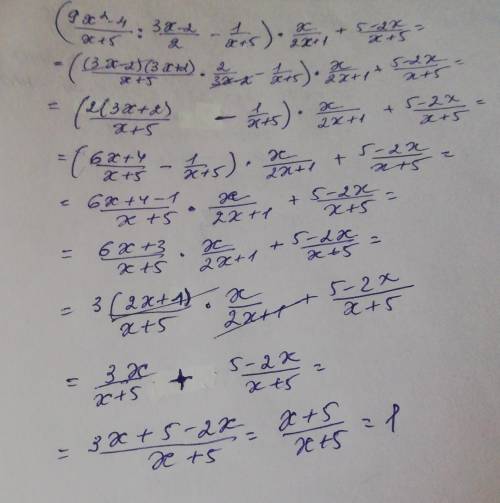 (9x²-4/x+5 : 3x-2/2 - 1/x+5) · x/2x+1 + 5-2x/x+5 =
= ((3x-2)(3x+2)/x+5 · 2/3x-2 - 1/x+5) · x/2x+1 + 5-2x/x+5 =
= (2(3x+2)/x+5 - 1/x+5) · x/2x+1 + 5-2x/x+5 =
= (6x+4/x+5 - 1/x+5) · x/2x+1 + 5-2x/x+5 =
= 6x+4-1/x+5 · x/2x+1 + 5-2x/x+5 =
= 6x+3/x+5 · x/2x+1 + 5-2x/x+5 =
= 3(2x+1)/x+5 · x/2x+1 + 5-2x/x+5
= 3x/x+5 + 5-2x/x+5 =
= 3x+5-2x/x+5 = x+5/x+5 = 1